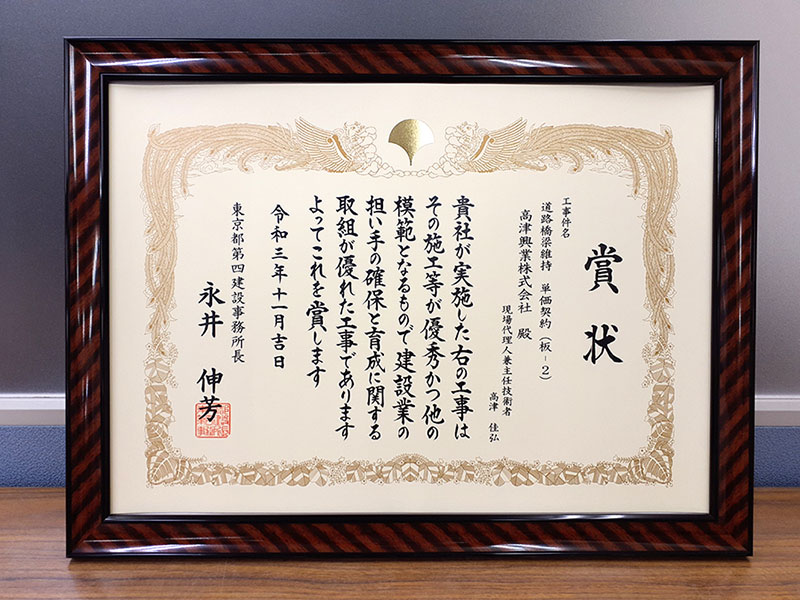 賞状
工事件名
道路橋梁維持 単価契約(板-2)
高津興業株式会社 殿
現場代理人兼主任技術者
高津 佳弘
貴社が実施した右の工事は
その施工等が優秀かつ他の
模範となるもので建設業の
担い手の確保と育成に関する
取組が優れた工事であります
よってこれを賞します
令和三年十一月吉日
東京都第四建設事務所長
永井 伸芳